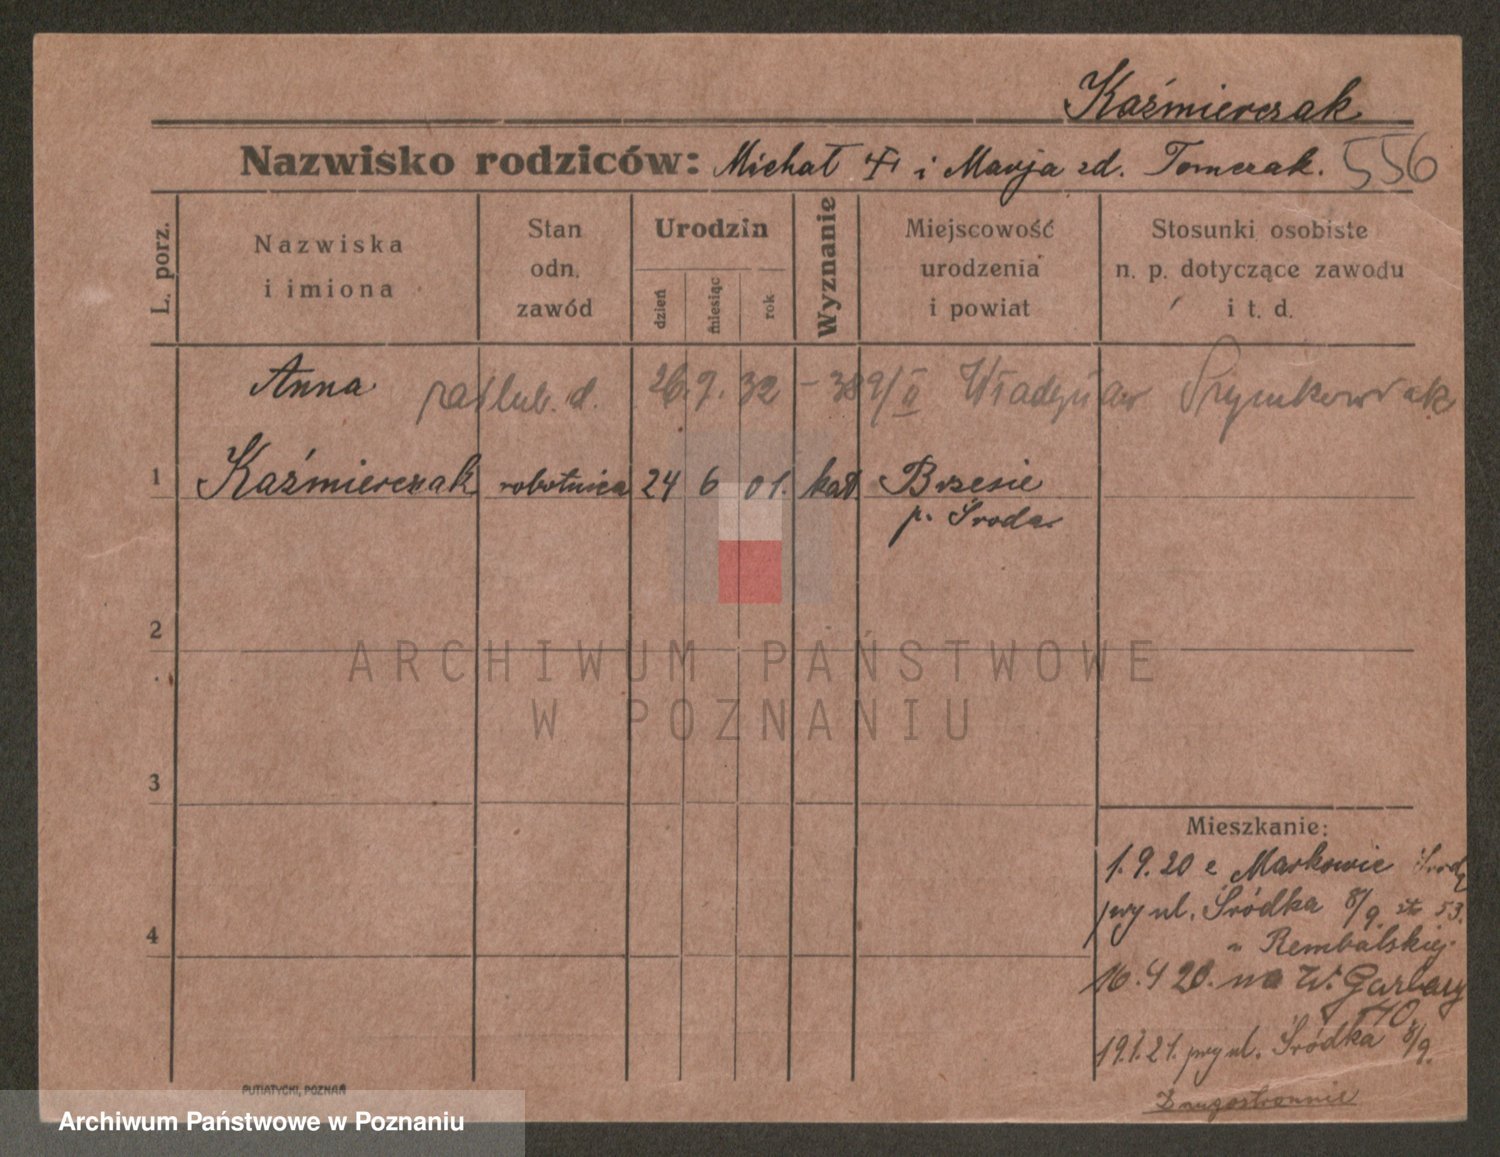 Kaźmierczak
Nazwisko rodziców: Michał i Marja zd. Tomczak. 556
L. porz.
Nazwiska
i imiona
Stan
odn.
zawód
Urodzin
dzień
miesiąc
rok
Wyznanie
Miejscowość
urodzenia
i powiat
Stosunki osobiste
n. p. dotyczące zawodu
i t. d.
Anna
26.9.32 - 389/II Władysław Szymkowiak
1 Kaźmierczak robotnica 24 6 01. kat. Brzesie
p. Środa
2
ARCHIWUM PAŃSTWOWE
W POZNANIU
3
Mieszkanie:
1.9.20 z Markowic Środy
przy ul. Śródka 8/9. 53.
u Rembalskiej.
16.9 20. na W. Garbary
40.
19.1.21. przy ul. Śródka 8/9.
4
Drugostronnie
PUTIATYCKI, POZNAŃ
Archiwum Państwowe w Poznaniu